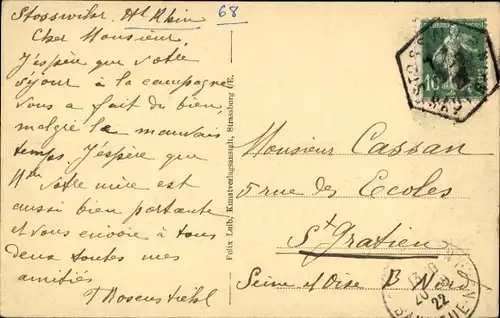 Stosswihr. Ht Rhin
68
Cher Monsieur,
J'espère que votre
séjour à la campagne
vous a fait du bien,
malgré le mauvais
temps. J'espère que
Mme Votre mère est
aussi bien portante
et vous envoie à tous
deux toutes mes
amitiés
T Rosenstiehl
Felix Luib, Kunstverlagsanstalt, Strassburg i/E.
10
Monsieur Cassan
5 rue des Ecoles
St Gratien
Seine et Oise B. Nord
22